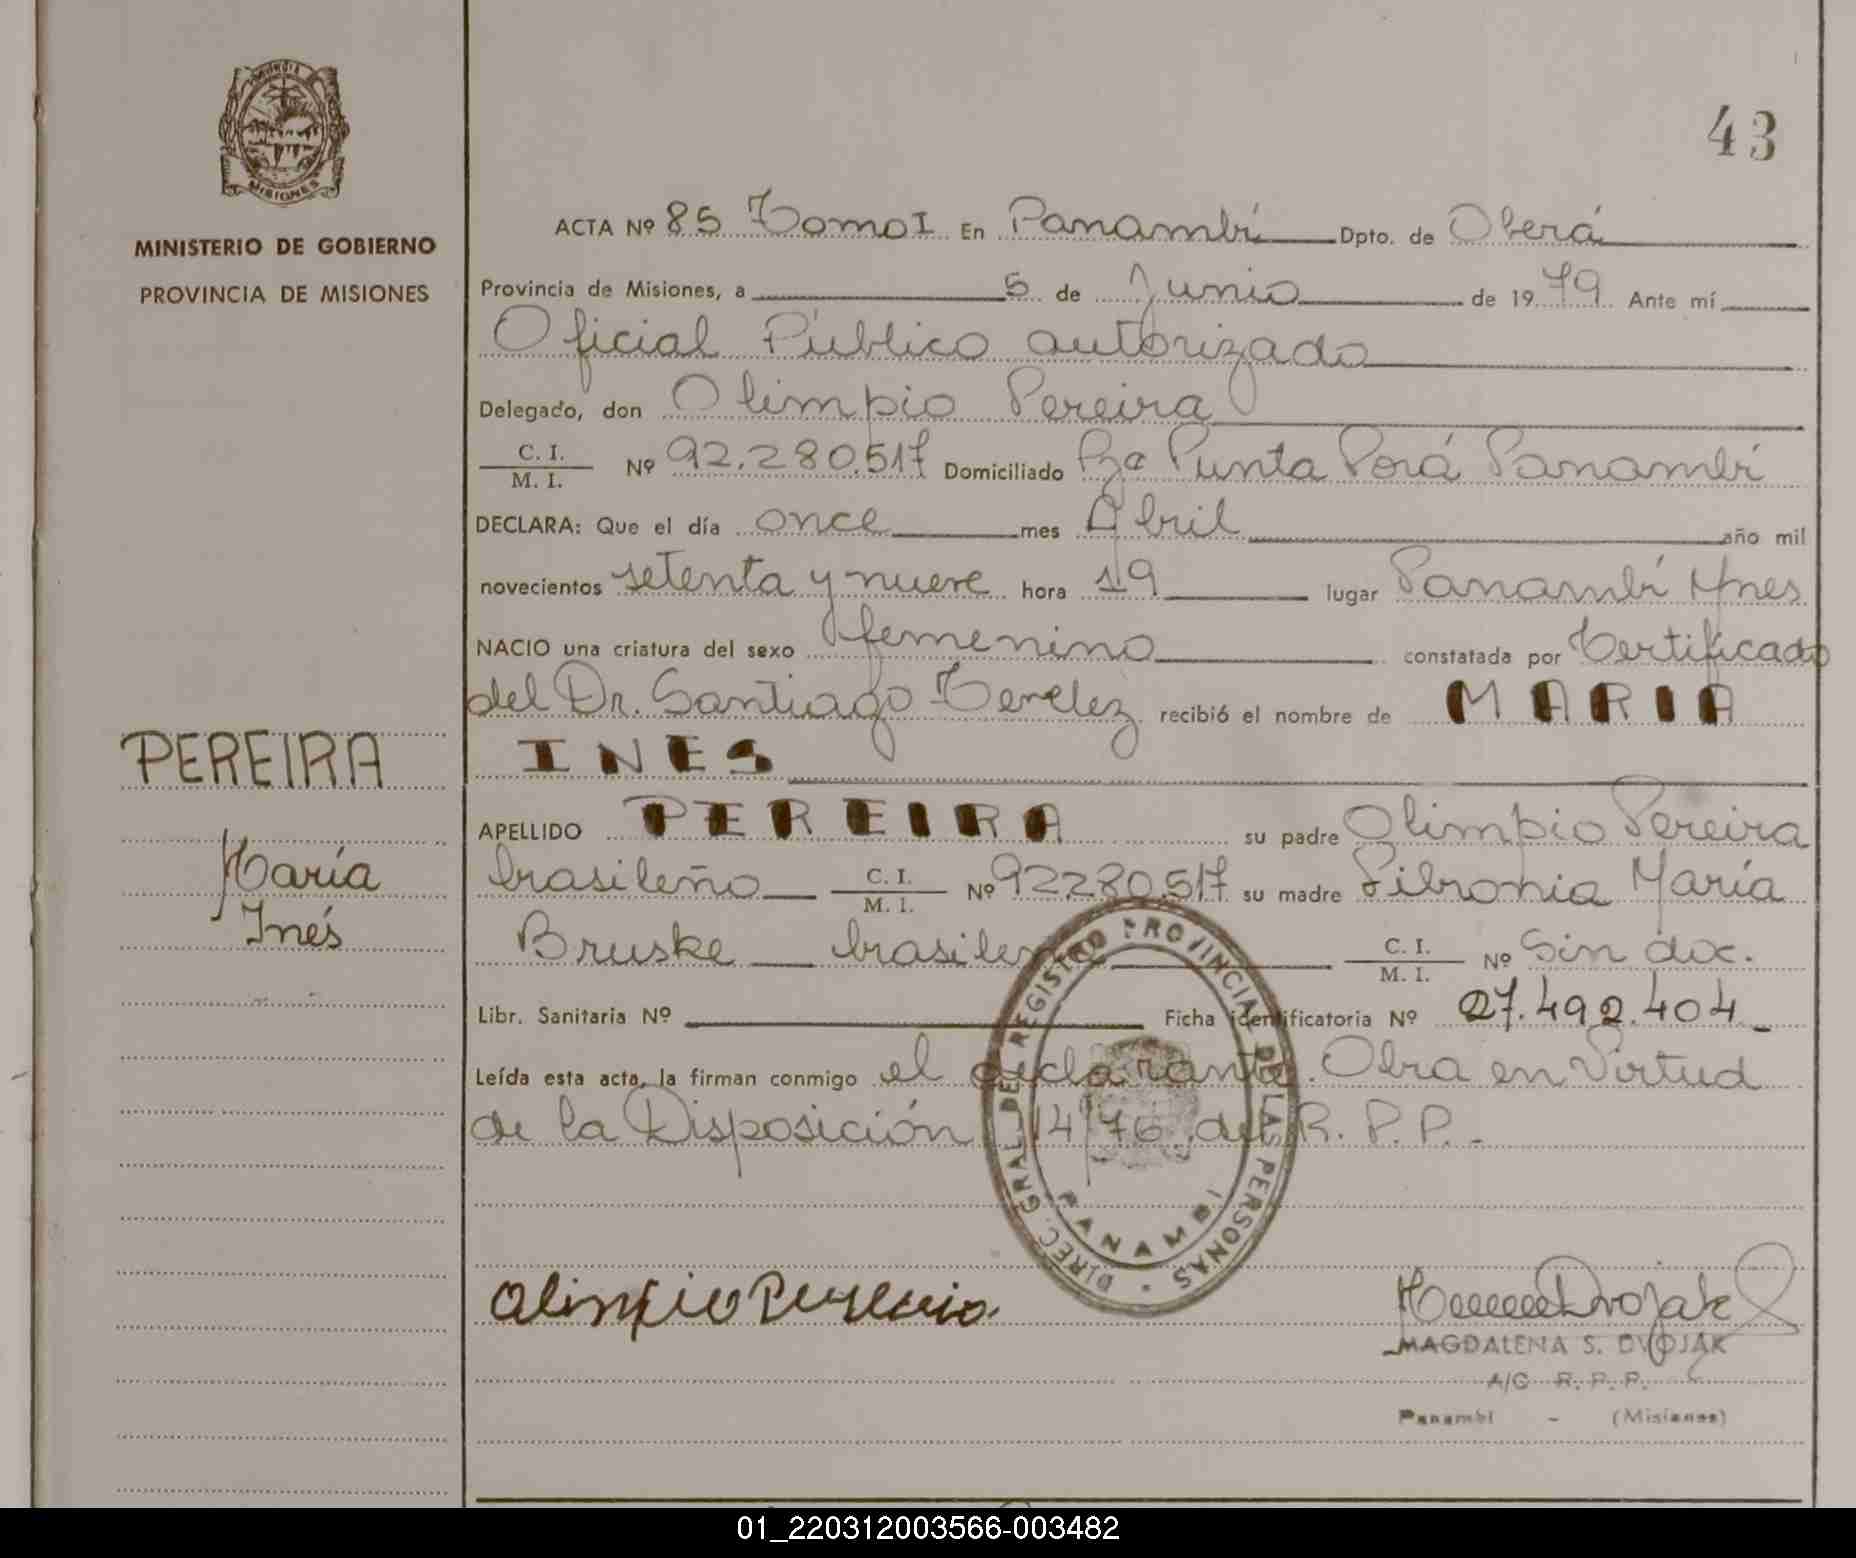 PROVINCIA
MISIONES
MINISTERIO DE GOBIERNO
PROVINCIA DE MISIONES
43
ACTA Nº 85 Tomo I En Panambí Dpto. de Oberá
Provincia de Misiones, a 5 de Junio de 1979 Ante mí
Oficial Público autorizado
Delegado, don Olimpio Pereira
C. I.
M. I. Nº 92.280.517 Domiciliado Bº Punta Porá Panambí
DECLARA: Que el día once mes Abril año mil
novecientos setenta y nueve hora 19 lugar Panambí Mnes
NACIO una criatura del sexo femenino constatada por Certificado
del Dr. Santiago recibió el nombre de MARIA
INES
APELLIDO PEREIRA su padre Olimpio Pereira
brasileño C. I.
M. I. Nº 92280.517 su madre Sibronia María
Bruske brasileña C. I.
M. I. Nº Sin doc.
Libr. Sanitaria Nº Ficha identificatoria Nº 27.492.404
Leída esta acta, la firman conmigo el declarante. Obra en Virtud
de la Disposición 14/76 del R. P. P.-
PEREIRA
María
Inés
DIREC. GRAL. DEL REGISTRO PROVINCIAL DE LAS PERSONAS -
PANAMBI
Olimpio Pereira
Dvojak
MAGDALENA S. DVOJAK
A/C R. P. P.
Panambí - (Misiones)
01_220312003566-003482